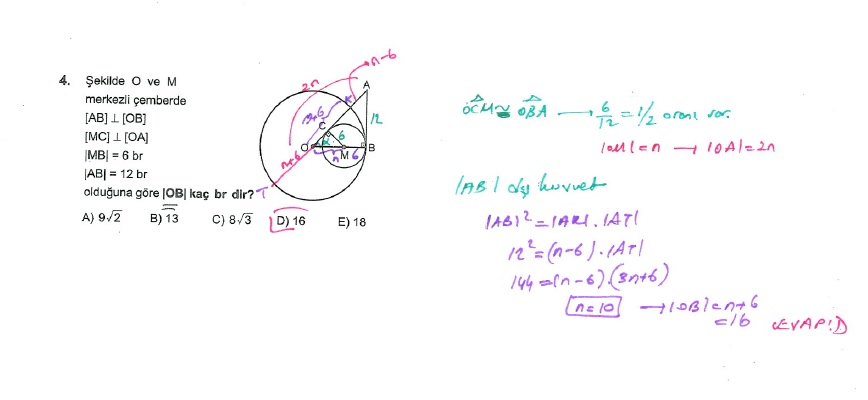 4. Şekilde O ve M
merkezli çemberde
[AB] ⊥ [OB]
[MC] ⊥ [OA]
|MB| = 6 br
|AB| = 12 br
olduğuna göre |OB| kaç br dir?
A) 9√2 B) 13 C) 8√3 D) 16 E) 18
n-6
2n
A
K
n+6
12
C
6
O
α
n
M
6
B
n+6
T
OCM ~ OBA → 6/12 = 1/2 oranı var.
|OM| = n → |OA| = 2n
|AB| dış kuvvet
|AB|² = |AK| . |AT|
12² = (n-6) . |AT|
144 = (n-6).(3n+6)
n = 10 → |OB| = n+6
= 16 CEVAP: D